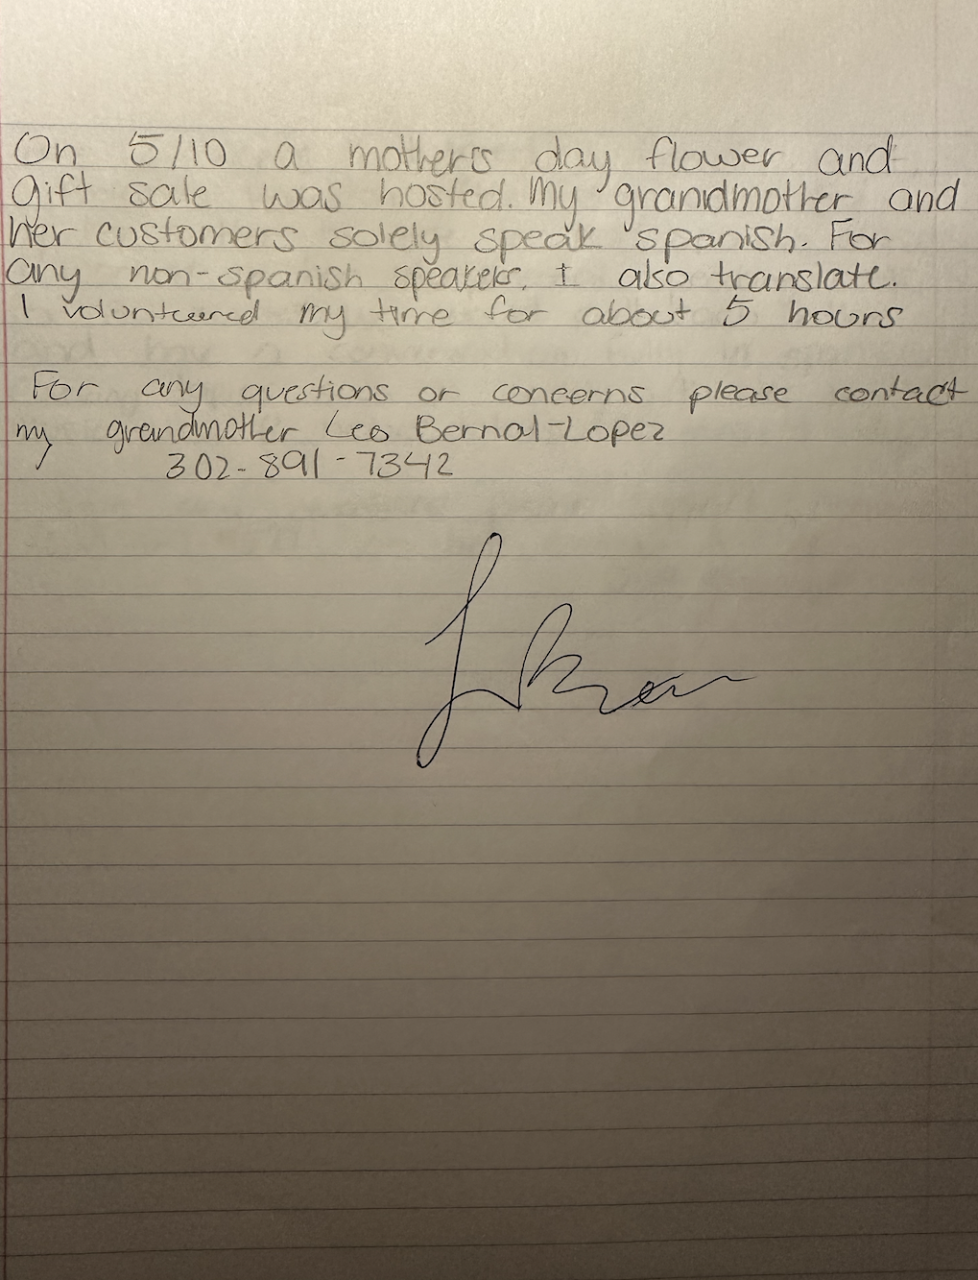 On 5/10 a mothers day flower and
gift sale was hosted. My grandmother and
her customers solely speak spanish. For
any non-spanish speakers, I also translate.
I volunteered my time for about 5 hours
For any questions or concerns please contact
my grandmother Leo Bernal-Lopez
302-891-7342